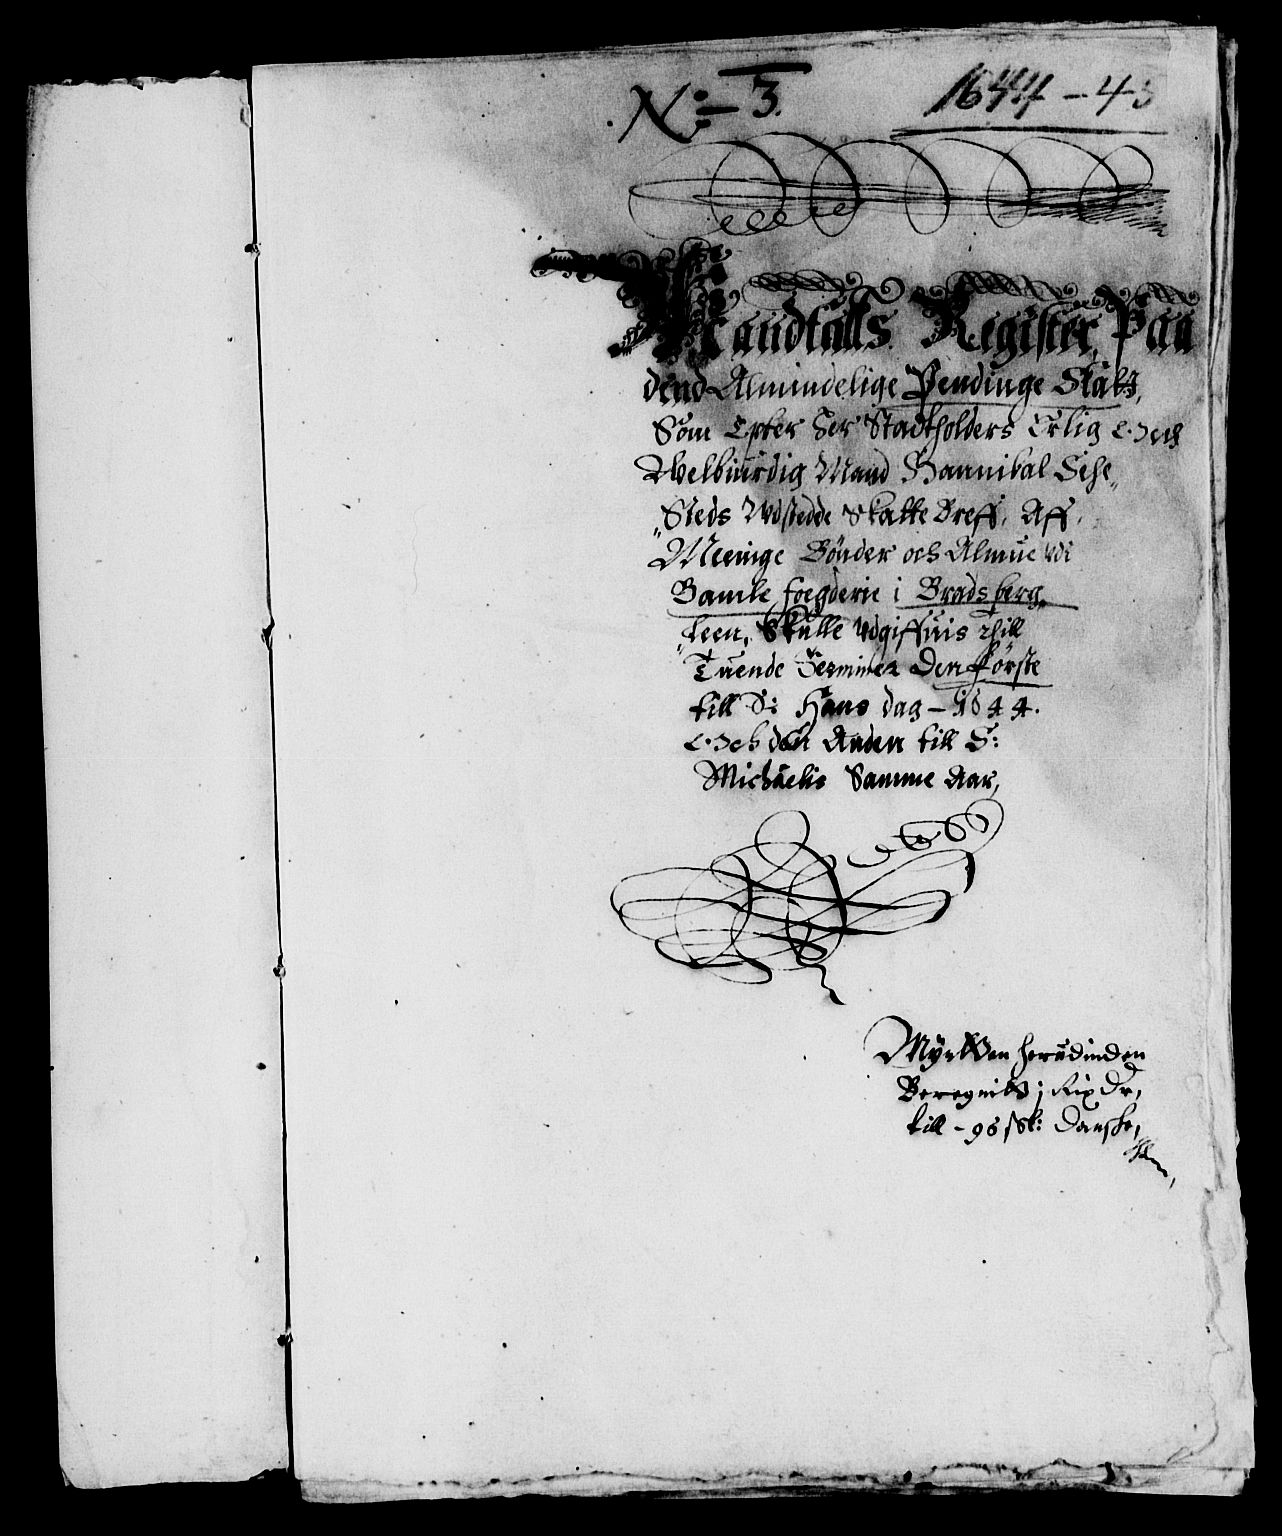 No: 3.
1644 - 45
Mandtalls Register, Paa
dend Almindelige Pendinge Skatt,
Som Epter Her Stadtholders Erlig Och
Welbiurdig Mand Hannibal Sehe„
„Steds Wdstedde Skatte Breff, Aff
Meenige Bönder och Almue udi
Bamle foegderie i Bradsberg„
„leen, Skulle udgiffuis thill
Tuende Terminer Den förste
till S: Hans dag – 1644.
Och den Anden till S:
Michaelis Samme Aar,
Myndten herudinden
Beregnitt i Rix Dr,
till – 96 sk: Danske,